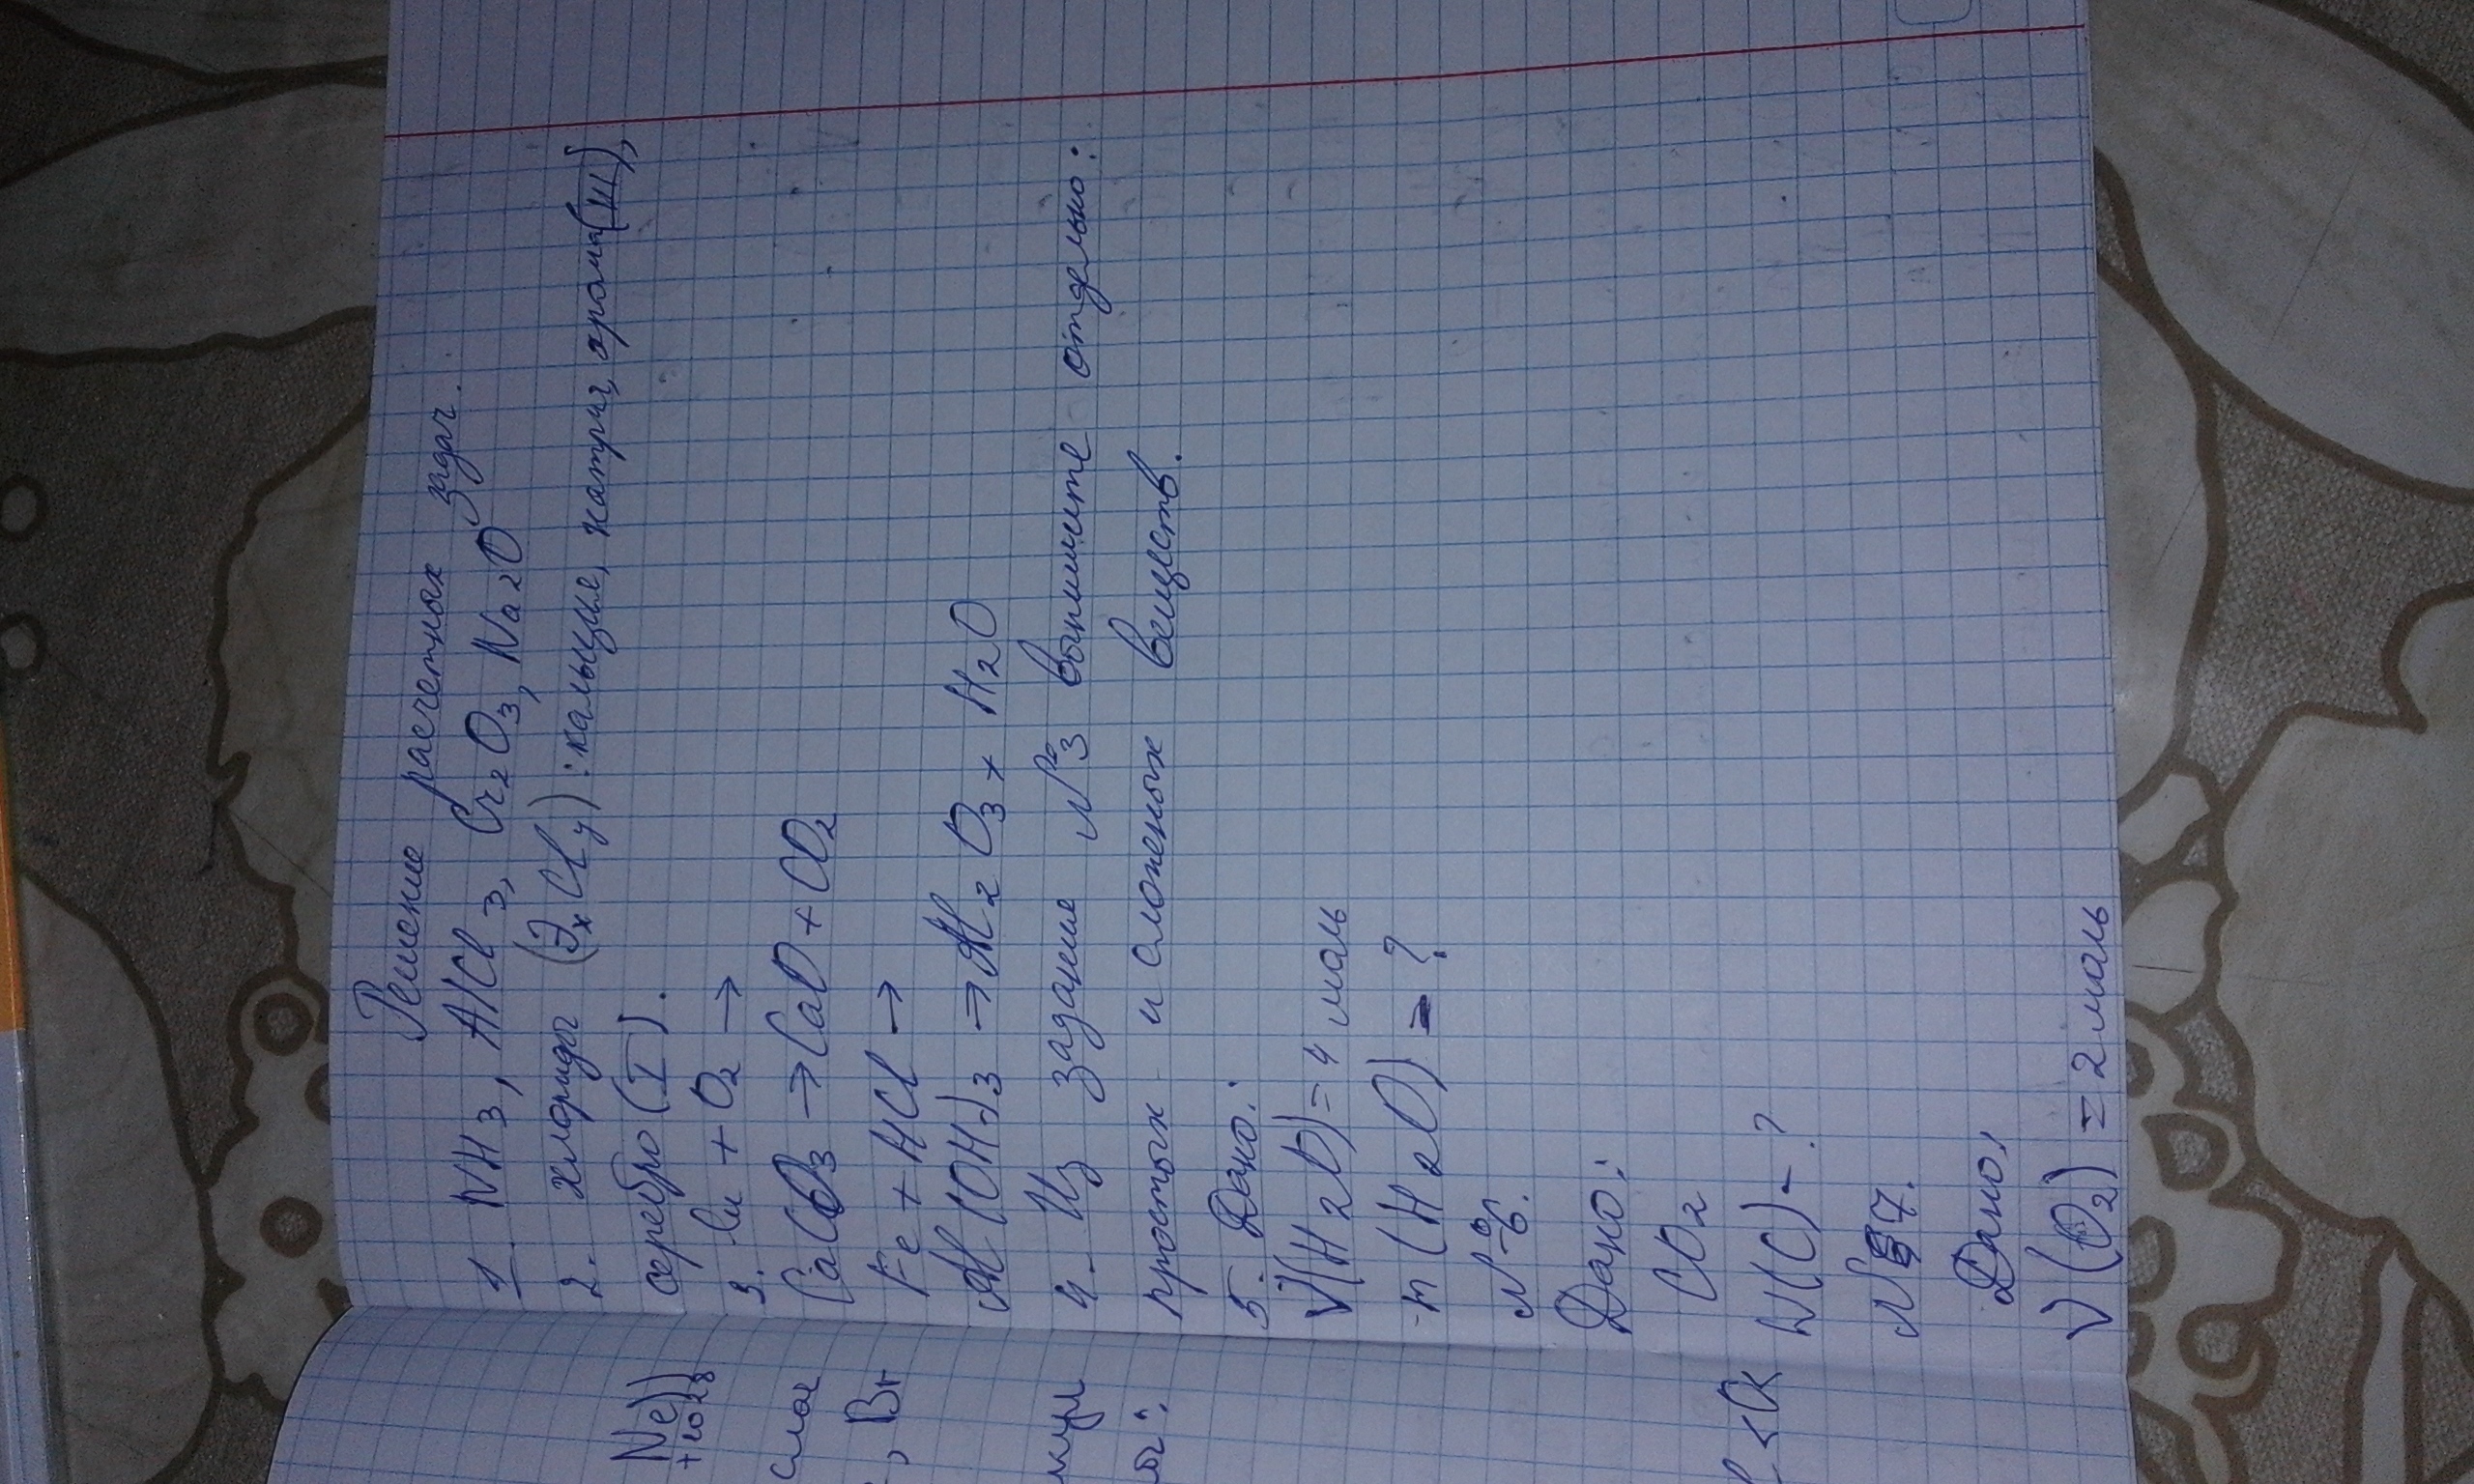 Решение расчетных задач.
1. NH3, AlCl3, Cr2O3, Na2O
2. хлориды (ЭxCly): кальция, натрия, хрома (III),
серебро (I).
3. Cu + O2 →
CaCO3 → CaO + CO2
Fe + HCl →
Al(OH)3 → Al2O3 + H2O
4. Из задания №3 выпишите отдельно:
простых и сложных веществ.
5. Дано:
V(H2O) = 4 моль
m(H2O) = ?
№6.
Дано:
CO2
W(C) - ?
№7.
Дано:
V(O2) = 2 моль
Ne))
+10 2 8
слое
, Br